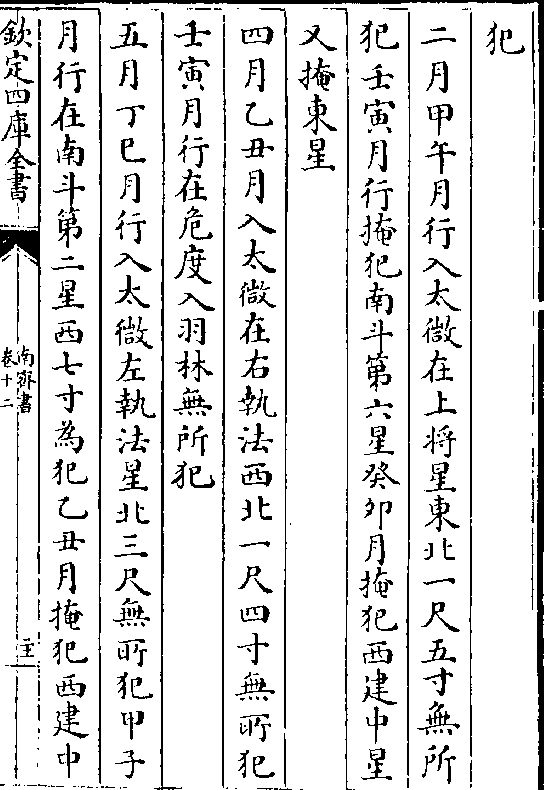 犯
二月甲午月行入太微在上将星東北一尺五寸無所
犯壬寅月行掩犯南斗第六星癸卯月掩犯西建中星
又掩東星
四月乙丑月入太微在右執法西北一尺四寸無所犯
壬寅月行在危度入羽林無所犯
五月丁巳月行入太微左執法星北三尺無所犯甲子
月行在南斗第二星西七寸為犯乙丑月掩犯西建中
欽定四庫全書
南齊書
卷十二